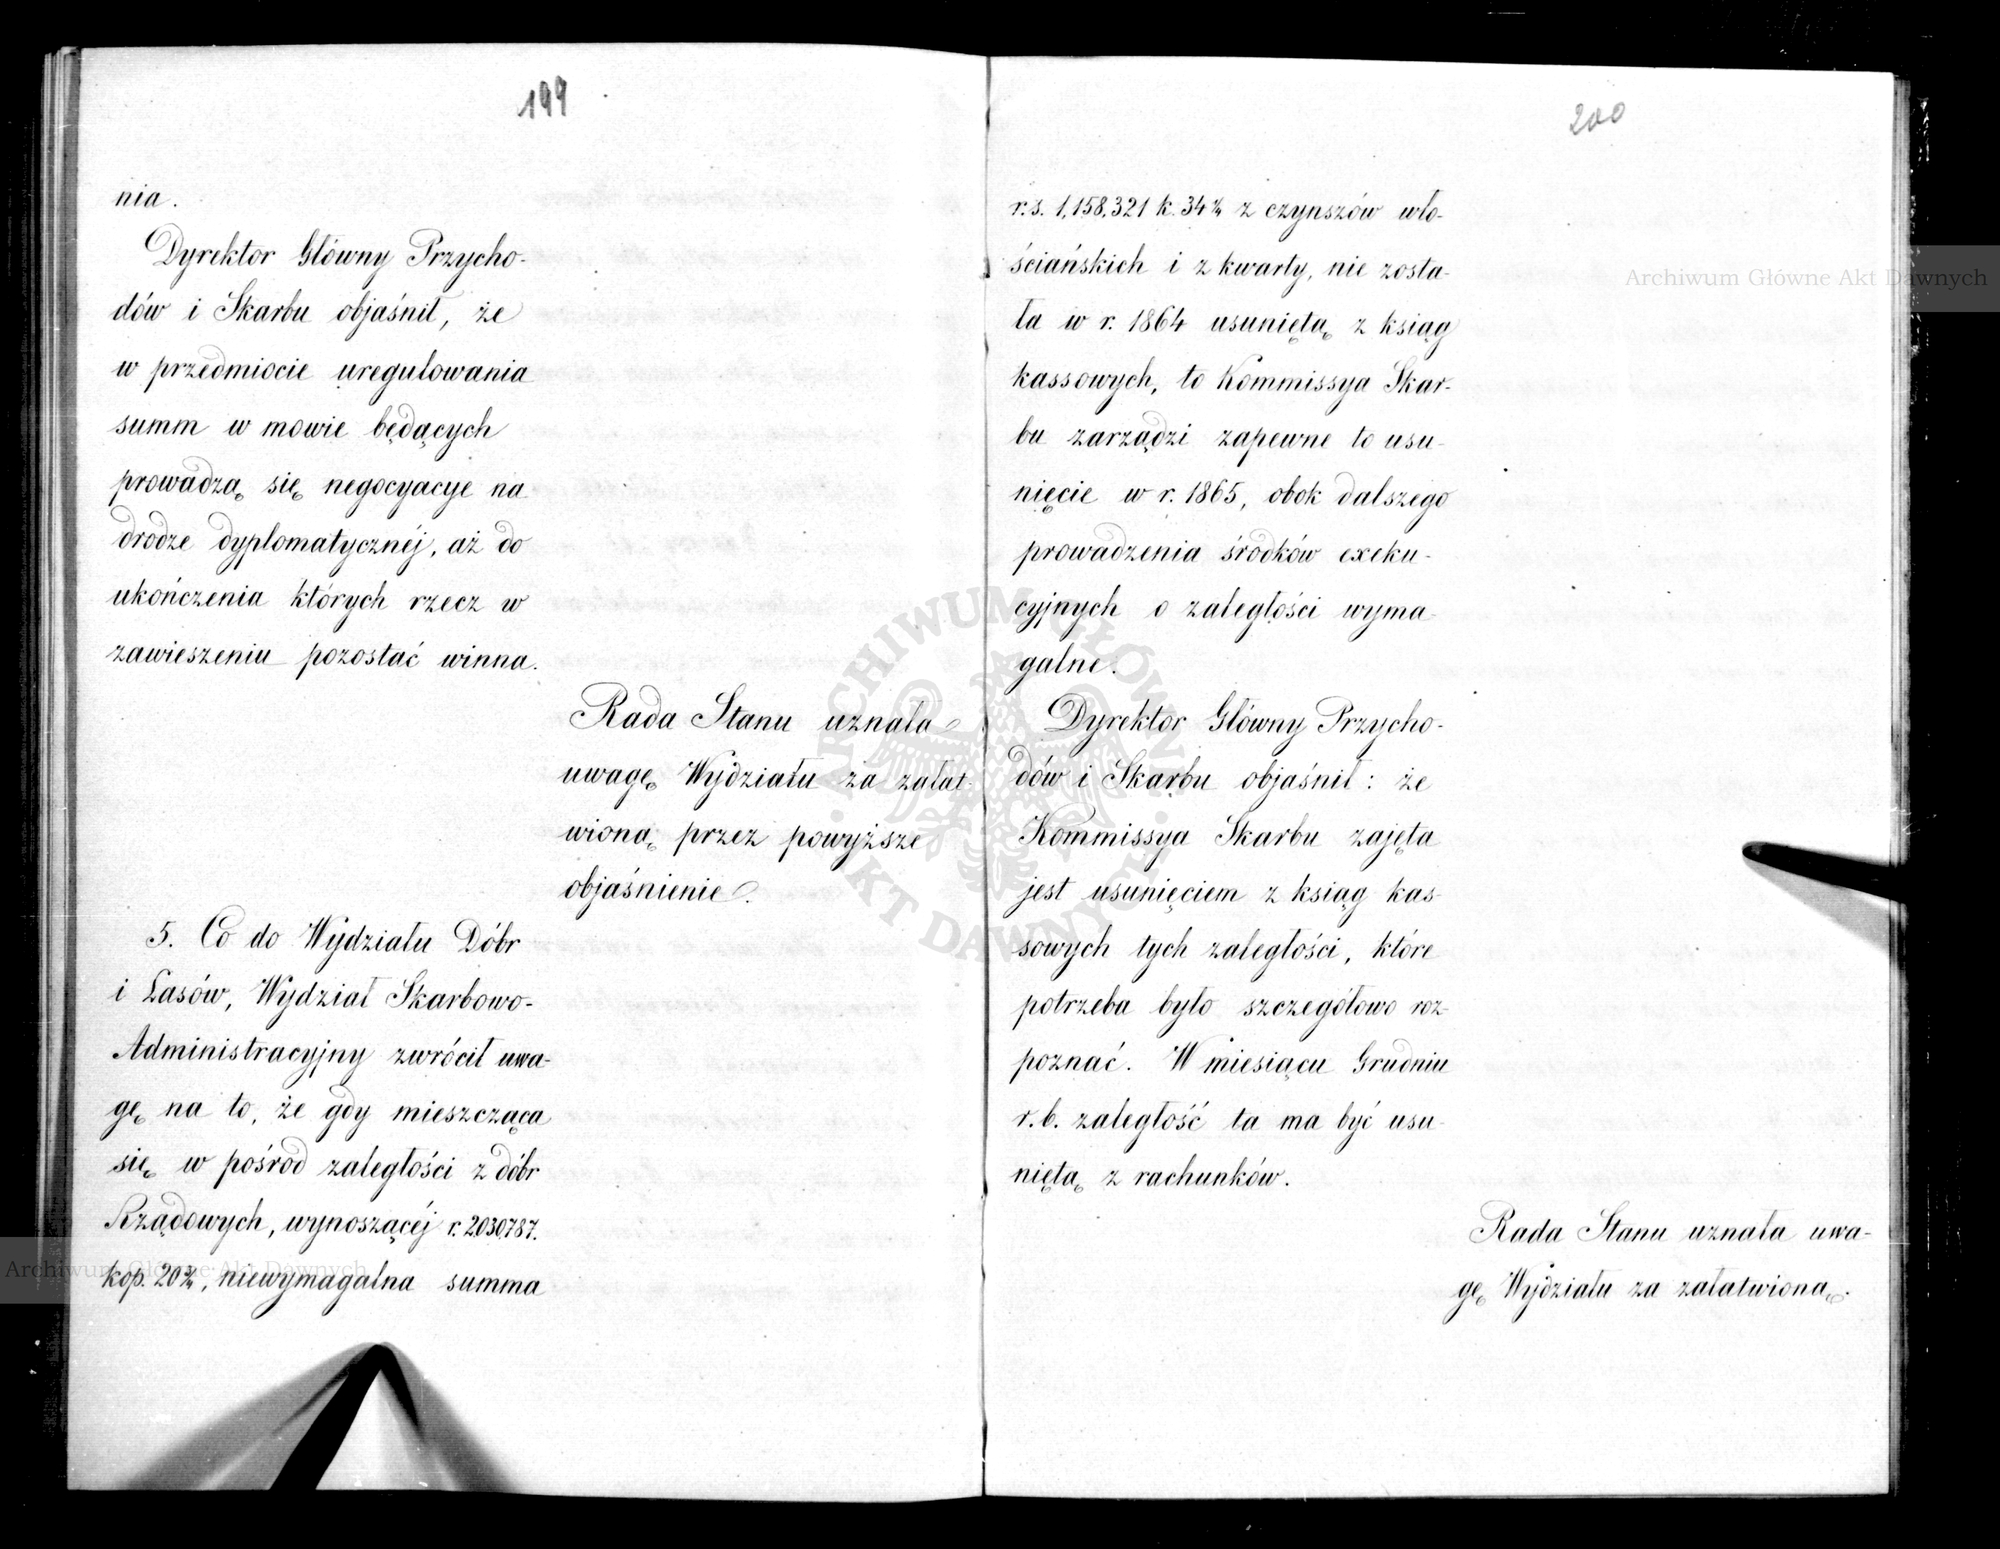 199
nia.
Dyrektor Główny Przycho-
dów i Skarbu objaśnił, że
w przedmiocie uregulowania
summ w mowie będących
prowadzą się negocyacye na
drodze dyplomatycznéj, aż do
ukończenia których rzecz w
zawieszeniu pozostać winna.
Rada Stanu uznała
uwagę Wydziału za załat-
wioną przez powyższe
objaśnienie.
5. Co do Wydziału Dóbr
i Lasów, Wydział Skarbowo-
Administracyjny zwrócił uwa-
gę na to, że gdy mieszcząca
się w pośród zaległości z dóbr
Rządowych, wynoszącéj r. 2.030,787.
kop. 20¾, niewymagalna summa
200
r.s. 1,158,321 k. 34¾ z czynszów wło-
ściańskich i z kwarty, nie zosta-
ła w r. 1864 usuniętą z ksiąg
kassowych, to Kommissya Skar-
bu zarządzi zapewne to usu-
nięcie w r. 1865, obok dalszego
prowadzenia środków exeku-
cyjnych o zaległości wyma-
galne.
Dyrektor Główny Przycho-
dów i Skarbu objaśnił: że
Kommissya Skarbu zajęta
jest usunięciem z ksiąg kas-
sowych tych zaległości, które
potrzeba było szczegółowo roz-
poznać. W miesiącu Grudniu
r.b. zaległość ta ma być usu-
niętą z rachunków.
Rada Stanu uznała uwa-
gę Wydziału za załatwioną.
Archiwum Główne Akt Dawnych
Archiwum Główne Akt Dawnych
ARCHIWUM GŁÓWNE AKT DAWNYCH